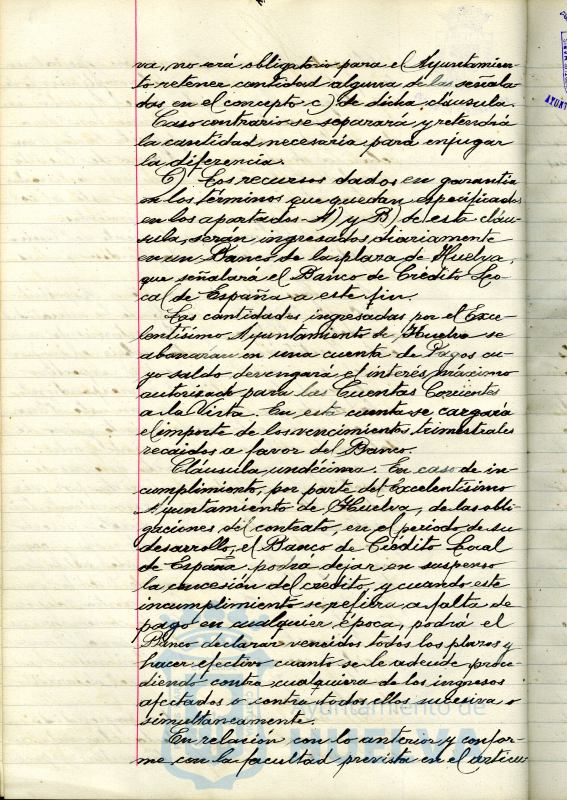 va, no será obligatorio para el Ayuntamien-
to retener cantidad alguna de las señala-
das en el concepto c) de dicha cláusula.
Caso contrario se separará y retendrá
la cantidad necesaria para enjugar
la diferencia.
C) Los recursos dados en garantía
en los términos que quedan especificados
en los apartados A) y B) de esta cláu-
sula, serán ingresados diariamente
en un Banco de la plaza de Huelva,
que señalará el Banco de Crédito Lo-
cal de España a este fin.
Las cantidades ingresadas por el Exce-
lentísimo Ayuntamiento de Huelva se
abonarán en una cuenta de Pagos cu-
yo saldo devengará el interés máximo
autorizado para las Cuentas Corrientes
a la Vista. En esta cuenta se cargará
el importe de los vencimientos trimestrales
recaídos a favor del Banco.
Cláusula undécima. En caso de in-
cumplimiento, por parte del Excelentísimo
Ayuntamiento de Huelva, de las obli-
gaciones del contrato, en el período de su
desarrollo, el Banco de Crédito Local
de España podrá dejar en suspenso
la concesión del crédito, y cuando este
incumplimiento se refiera a falta de
pago en cualquier época, podrá el
Banco declarar vencidos todos los plazos y
hacer efectivo cuanto se le adeude proce-
diendo contra cualquiera de los ingresos
afectados o contra todos ellos sucesiva o
simultáneamente.
En relación con lo anterior y confor-
me con la facultad prevista en el artícu-
Ayuntamiento de
HUELVA